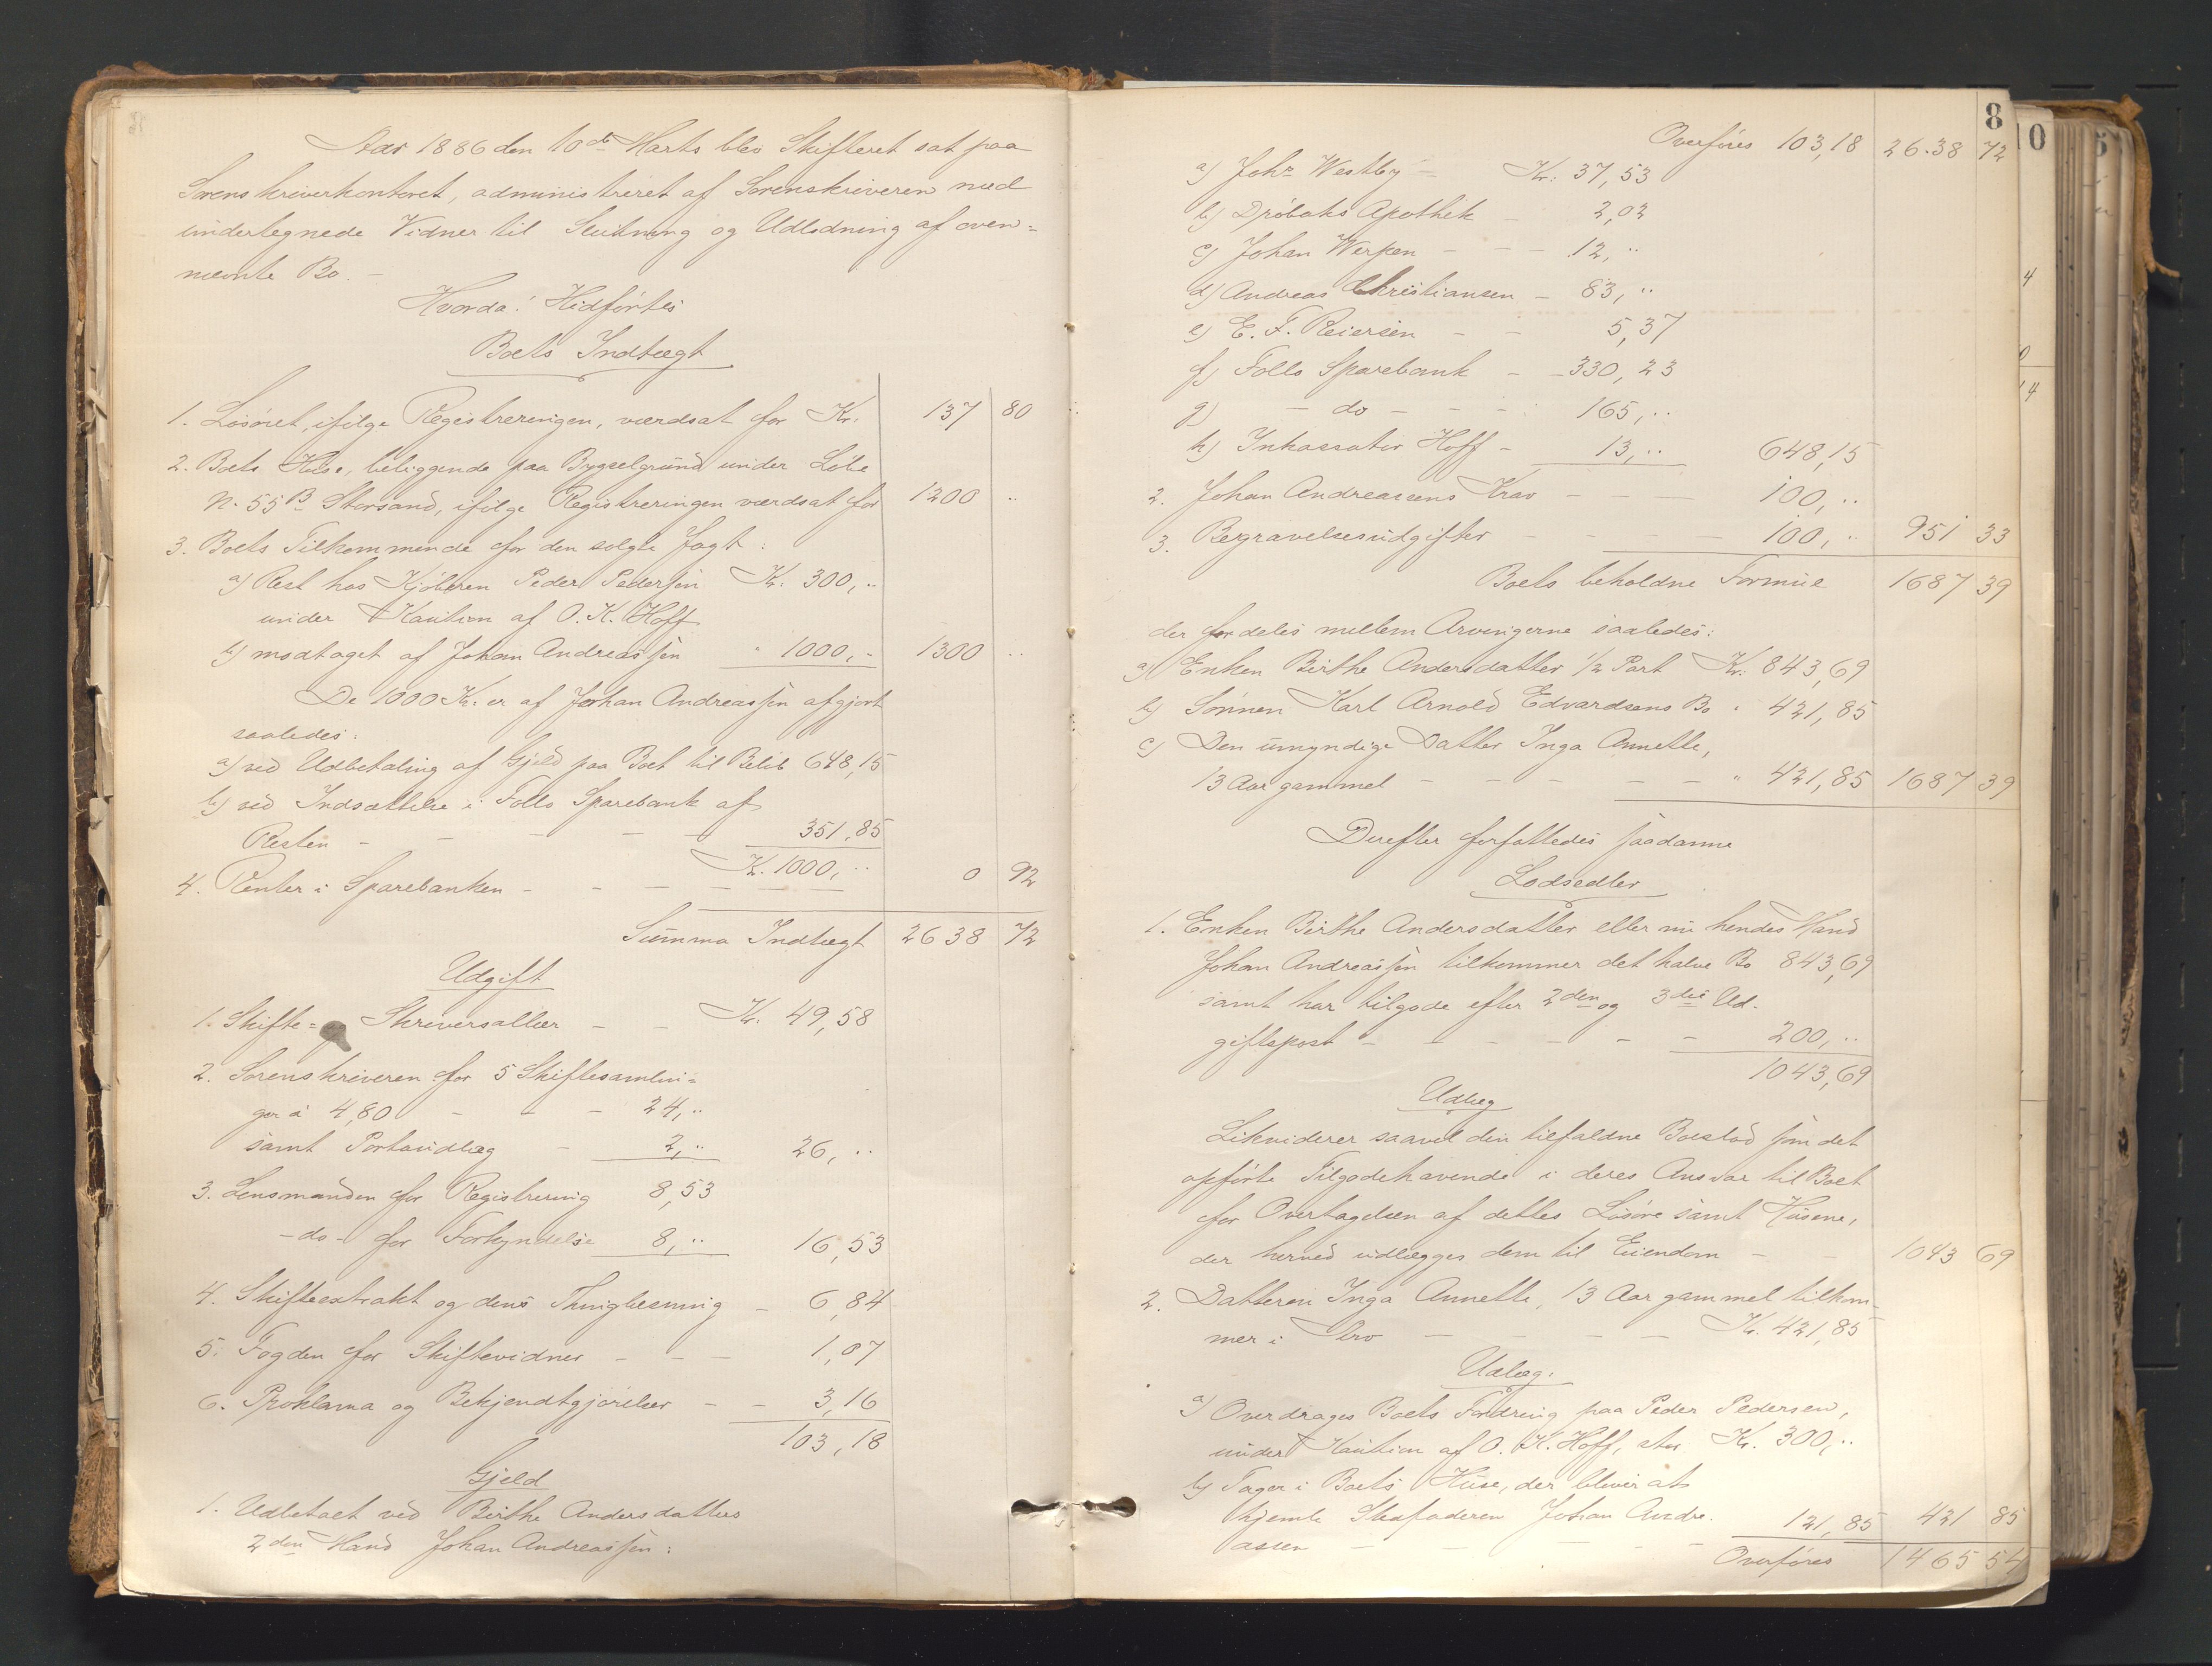 Aar 1886 den 10de Marts blev Skifteret sat paa
Sorenskriverkontoret, administreret af Sorenskriveren med
undertegnede Vidner til Slutning og Udlodning af oven=
nævnte Bo. –
Hvorda! Hidførtes
Boets Indtægt
1. Løsøret, ifølge Registreringen, værdsat for Kr. 137 80
2. Boets Huse, beliggende paa Bygselgrund under Løbe
No. 55B Storsand, ifølge Registreringen værdsat for 1200 ..
3. Boets Tilkommende for den solgte Jagt:
a) Rest hos Kjøberen Peder Pedersen Kr. 300, ..
under Kaution af O. K. Hoff
b) modtaget af Johan Andreassen " 1000, .. 1300 ..
De 1000 Kr. er af Johan Andreassen afgjort
saaledes:
a) ved Udbetaling af Gjeld paa Boet til Beløb 648,15
b) ved Indsættelse i Follo Sparebank af
Resten – – – – 351,85
K. 1000, ..
4. Renter i Sparebanken – – – – 0 92
Summa Indtægt 2638 72
Udgift
1. Skifte= og Skriversalær – – Kr. 49,58
2. Sorenskriveren for 5 Skiftesamlin=
ger à 4,80 – – – 24, ..
samt Portoudlæg – 2, .. 26, ..
3. Lensmanden for Registrering 8,53
– do – for Forkyndelse 8, .. 16,53
4. Skifteextrakt og dens Thinglæsning – 6,84
5. Fogden for Skiftevidner – – – 1,07
6. Proklama og Bekjendtgjørelser – – 3,16
103,18
Gjeld
1. Udbetalt ved Birthe Andersdatters
2den Mand Johan Andreassen:
8
Overføres 103,18 26.38 72
a) Johs Westby – Kr. 37,53
b) Drøbaks Apothek – 2,02
c) Johan Werpen – – – 12, ..
d) Andreas Christiansen – 83, ..
e) E. F. Reiersen – – 5,37
f) Follo Sparebank – – 330,23
g) – do – – – 165, ..
h) Inkassator Hoff – 13, .. 648,15
2. Johan Andreassens Krav – – – 100, ..
3. Begravelsesudgifter – – – – 100, .. 951 33
Boets beholdne Formue 1687 39
der fordeles mellem Arvingerne saaledes:
a) Enken Birthe Andersdatter 1/2 Part Kr. 843,69
b) Sønnen Karl Arnold Edvardsens Bo " 421,85
c) Den umyndige Datter Inga Annette,
13 Aar gammel – – – – – " 421,85 1687 39
Derefter forfattedes saadanne
Lodsedler
1. Enken Birthe Andersdatter eller nu hendes Mand
Johan Andreassen tilkommer det halve Bo 843,69
samt har tilgode efter 2den og 3die Ud-
giftspost – – – – – – 200, ..
1043,69
Udlæg
Likviderer saavel den tilfaldne Boeslod som det
opførte Tilgodehavende i deres Ansvar til Boet
for Overtagelsen af dettes Løsøre samt Husene,
der herved udlægges dem til Eiendom – – 1043 69
2. Datteren Inga Annette, 13 Aar gammel tilkom-
mer i Arv – – – – Kr. 421,85
Udlæg:
a) Overdrages Boets Fordring paa Peder Pedersen,
under Kaution af O. K. Hoff, stor Kr. 300, ..
b) Tager i Boets Huse, der bliver at
hjemle Stedfaderen Johan Andre.
assen – – – – – 121,85 421 85
Overføres 1465 54